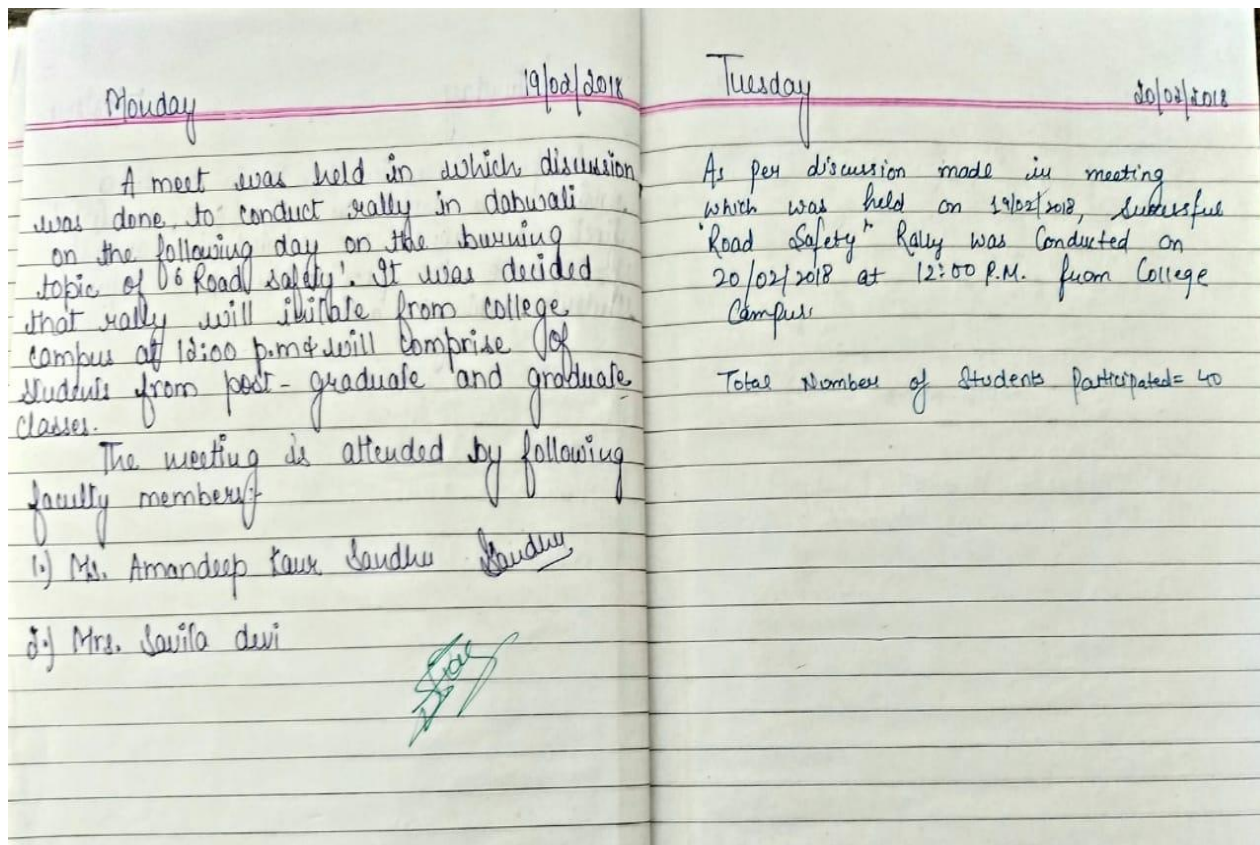 Monday 19/02/2018
A meet was held in which discussion
was done, to conduct rally in dabwali
on the following day on the burning
topic of '6 Road safety'. It was decided
that rally will initate from college
campus at 12:00 p.m & will comprise of
students from post-graduate and graduate
classes.
The meeting is attended by following
faculty members:-
1.) Ms. Amandeep kaur Sandhu Sandhu
2.) Mrs. Savita devi
Tuesday 20/02/2018
As per discussion made in meeting
which was held on 19/02/2018, Successful
"Road Safety" Rally was Conducted on
20/02/2018 at 12:00 P.M. from College
Campus
Total Number of Students Participated= 40